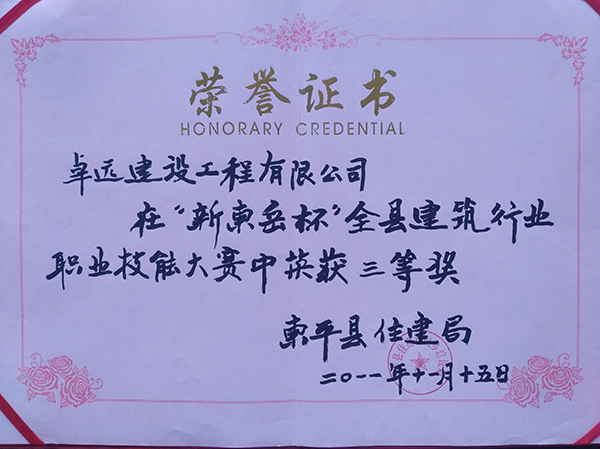 荣誉证书
HONORARY CREDENTIAL
卓远建设工程有限公司
在“新东岳杯”全县建筑行业
职业技能大赛中荣获三等奖
东平县住建局
二〇一一年十一月十五日